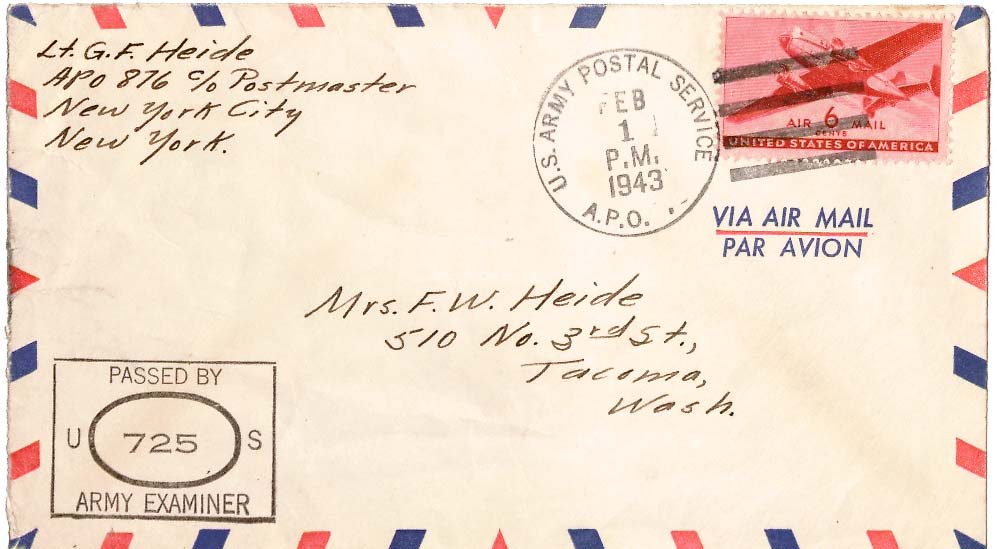 Lt. G.F. Heide
APO 876 c/o Postmaster
New York City
New York.
U.S. ARMY POSTAL SERVICE
FEB
1
P.M.
1943
A.P.O.
AIR 6 MAIL
CENTS
UNITED STATES OF AMERICA
VIA AIR MAIL
PAR AVION
Mrs. F.W. Heide
510 No. 3rd St.,
Tacoma,
Wash.
PASSED BY
U 725 S
ARMY EXAMINER